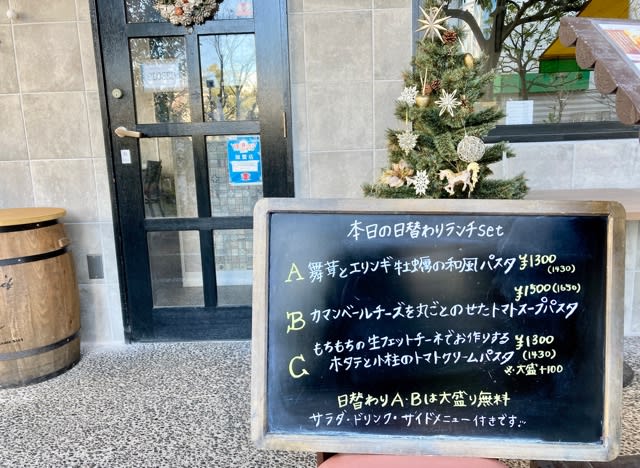 CLOSED
加盟店
本日の日替わりランチset
A 舞茸とエリンギ牡蠣の和風パスタ ¥1300
(1430)
¥1500(1650)
B カマンベールチーズを丸ごとのせたトマトスープパスタ
もちもちの生フェットチーネでお作りする ¥1300
C ホタテと小柱のトマトクリームパスタ (1430)
※大盛+100
日替わりA・Bは大盛り無料
サラダ・ドリンク・サイドメニュー付きです…